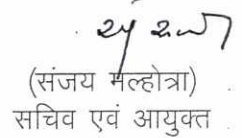 (संजय मल्होत्रा)
सचिव एवं आयुक्त